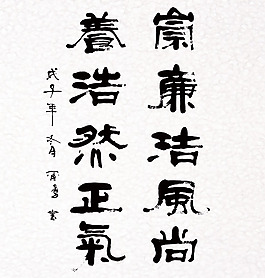 崇廉洁風尚
養浩然正氣
戊子年